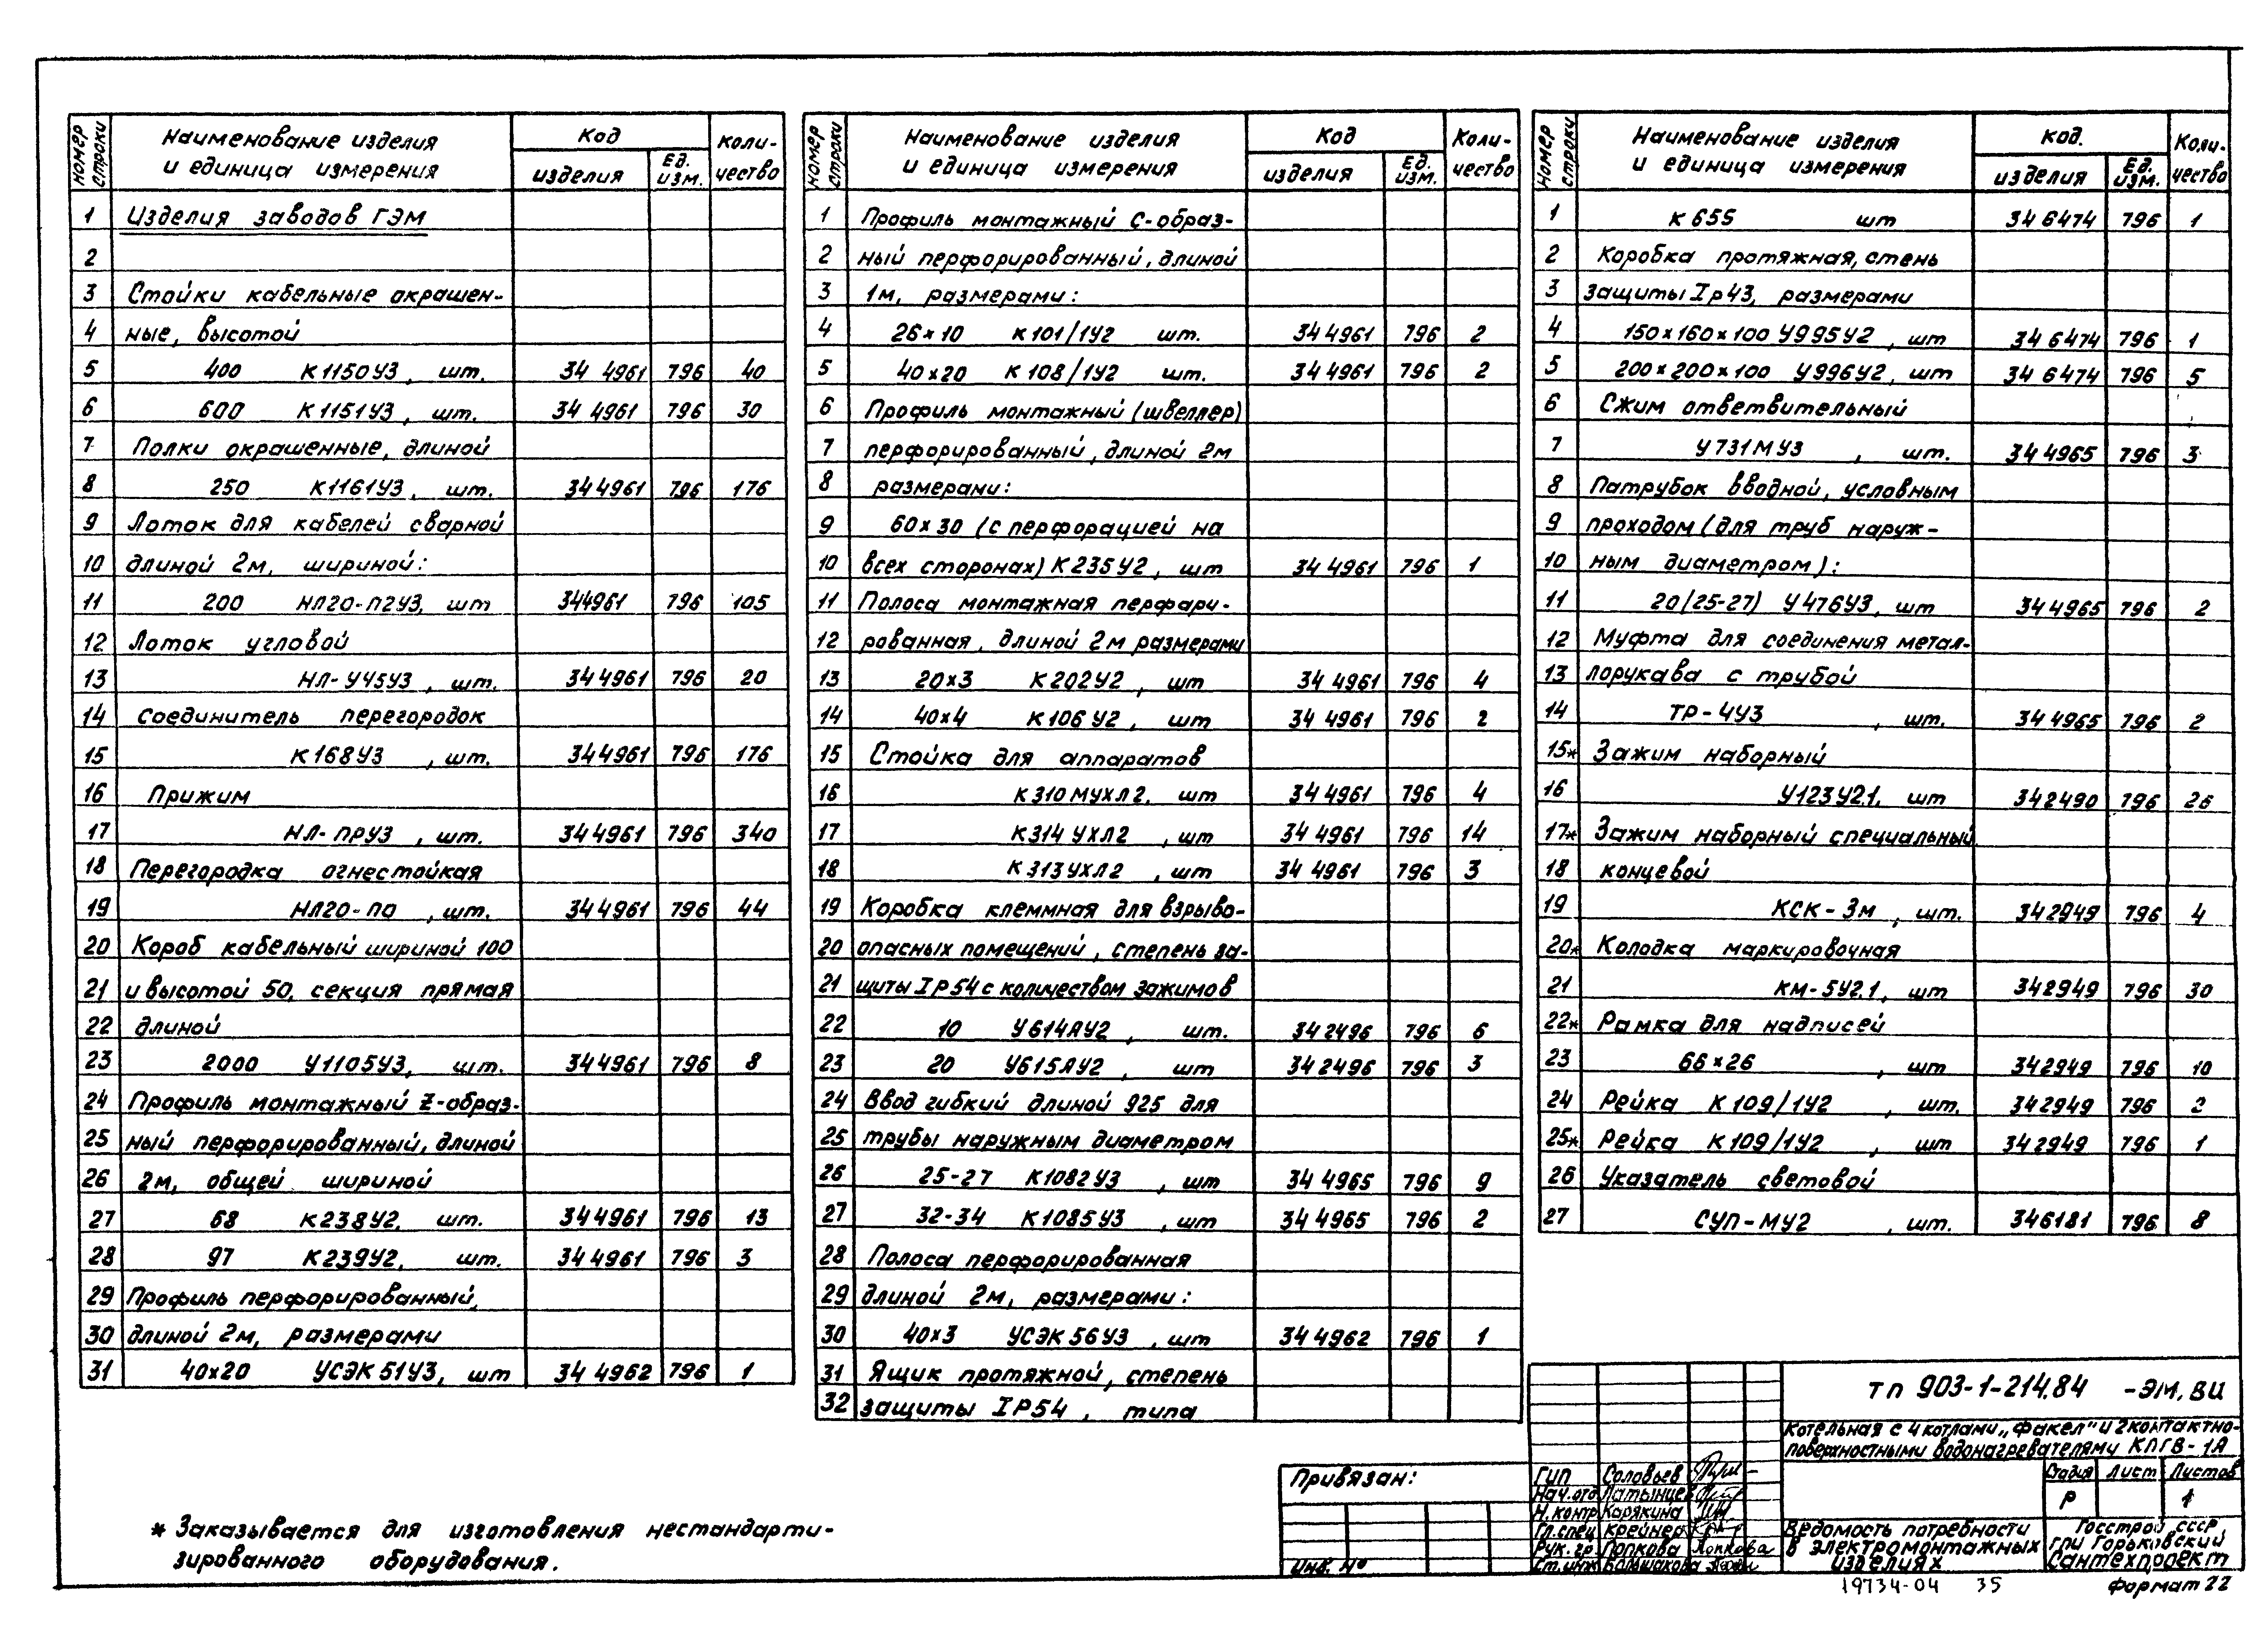 Номер строки | Наименование изделия и единица измерения | Код изделия | Код Ед. изм. | Количество
1 Изделия заводов ГЭМ
2
3 Стойки кабельные окрашен-
4 ные, высотой
5 400 К1150У3, шт. 34 4961 796 40
6 600 К1151У3, шт. 34 4961 796 30
7 Полки окрашенные, длиной
8 250 К1161У3, шт. 34 4961 796 176
9 Лоток для кабелей сварной
10 длиной 2м, шириной:
11 200 НЛ20-П2У3, шт 344961 796 105
12 Лоток угловой
13 НЛ-У45У3, шт. 34 4961 796 20
14 Соединитель перегородок
15 К168У3, шт. 34 4961 796 176
16 Прижим
17 НЛ-ПРУ3, шт. 34 4961 796 340
18 Перегородка огнестойкая
19 НЛ20-ПО, шт. 34 4961 796 44
20 Короб кабельный шириной 100
21 и высотой 50, секция прямая
22 длиной
23 2000 У1105У3, шт. 34 4961 796 8
24 Профиль монтажный Z-образ-
25 ный перфорированный, длиной
26 2м, общей шириной
27 68 К238У2, шт. 34 4961 796 13
28 97 К239У2, шт. 34 4961 796 3
29 Профиль перфорированный,
30 длиной 2м, размерами
31 40х20 УСЭК51У3, шт 34 4962 796 1
Номер строки | Наименование изделия и единица измерения | Код изделия | Код Ед. изм. | Количество
1 Профиль монтажный С-образ-
2 ный перфорированный, длиной
3 1м, размерами:
4 26×10 К101/1У2 шт. 34 4961 796 2
5 40×20 К108/1У2 шт. 34 4961 796 2
6 Профиль монтажный (швеллер)
7 перфорированный, длиной 2м
8 размерами:
9 60×30 (с перфорацией на
10 всех сторонах) К235У2, шт 34 4961 796 1
11 Полоса монтажная перфари-
12 рованная, длиной 2м размерами
13 20×3 К202У2, шт 34 4961 796 4
14 40×4 К106У2, шт 34 4961 796 2
15 Стойка для аппаратов
16 К310МУХЛ2, шт 34 4961 796 4
17 К314УХЛ2, шт 34 4961 796 14
18 К313УХЛ2, шт 34 4961 796 3
19 Коробка клеммная для взрыво-
20 опасных помещений, степень за-
21 щиты IP54 с количеством зажимов
22 10 У614АУ2, шт. 34 2496 796 6
23 20 У615АУ2, шт 34 2496 796 3
24 Ввод гибкий длиной 925 для
25 трубы наружным диаметром
26 25-27 К1082У3, шт 34 4965 796 9
27 32-34 К1085У3, шт 34 4965 796 2
28 Полоса перфорированная
29 длиной 2м, размерами:
30 40×3 УСЭК56У3, шт 34 4962 796 1
31 Ящик протяжной, степень
32 защиты IP54, типа
Номер строки | Наименование изделия и единица измерения | Код. изделия | Код. Ед. изм. | Количество
1 К655 шт 34 6474 796 1
2 Коробка протяжная, стень
3 защиты Ip43, размерами
4 150×160×100 У995У2, шт 34 6474 796 1
5 200×200×100 У996У2, шт 34 6474 796 5
6 Сжим ответвительный
7 У731МУ3, шт. 34 4965 796 3
8 Патрубок вводной, условным
9 проходом (для труб наруж-
10 ным диаметром):
11 20(25-27) У476У3, шт 34 4965 796 2
12 Муфта для соединения метал-
13 лорукава с трубой
14 ТР-4У3, шт. 34 4965 796 2
15* Зажим наборный
16 У123У2.1, шт 34 2490 796 26
17* Зажим наборный специальный
18 концевой
19 КСК-3м, шт. 34 2949 796 4
20* Колодка маркировочная
21 КМ-5У2.1, шт 34 2949 796 30
22* Рамка для надписей
23 66×26, шт 34 2949 796 10
24 Рейка К109/1У2, шт. 34 2949 796 2
25* Рейка К109/1У2, шт 34 2949 796 1
26 Указатель световой
27 СУП-МУ2, шт. 346181 796 8
* Заказывается для изготовления нестандарти-
зированного оборудования.
Привязан:
Инв. №
ТП 903-1-214.84 -ЭМ, ВИ
Котельная с 4 котлами „Факел" и 2 контактно-
поверхностными водонагревателями КПГВ-1А
ГИП Соловьев
Нач. отд Латынцев
Н. контр Карякина
Гл. спец Крейнер
Рук. гр. Попкова
Ст. инж Большакова
Стадия Лист Листов
Р 1
Ведомость потребности
в электромонтажных
изделиях
Госстрой СССР
ГПИ Горьковский
Сантехпроект
19734-04 35
Формат 22